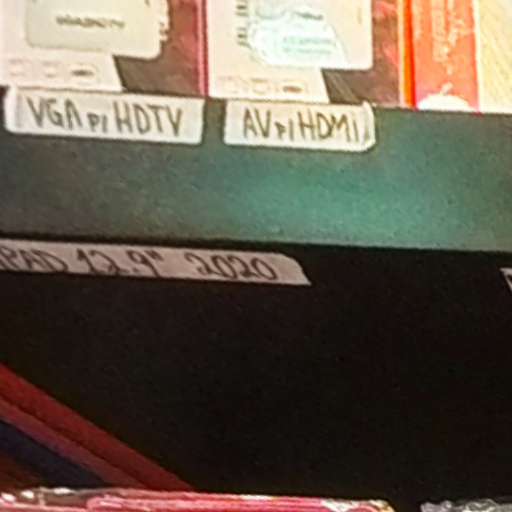 VGA p/ HDTV
AV p/ HDMi
PAD 12.9" 2020